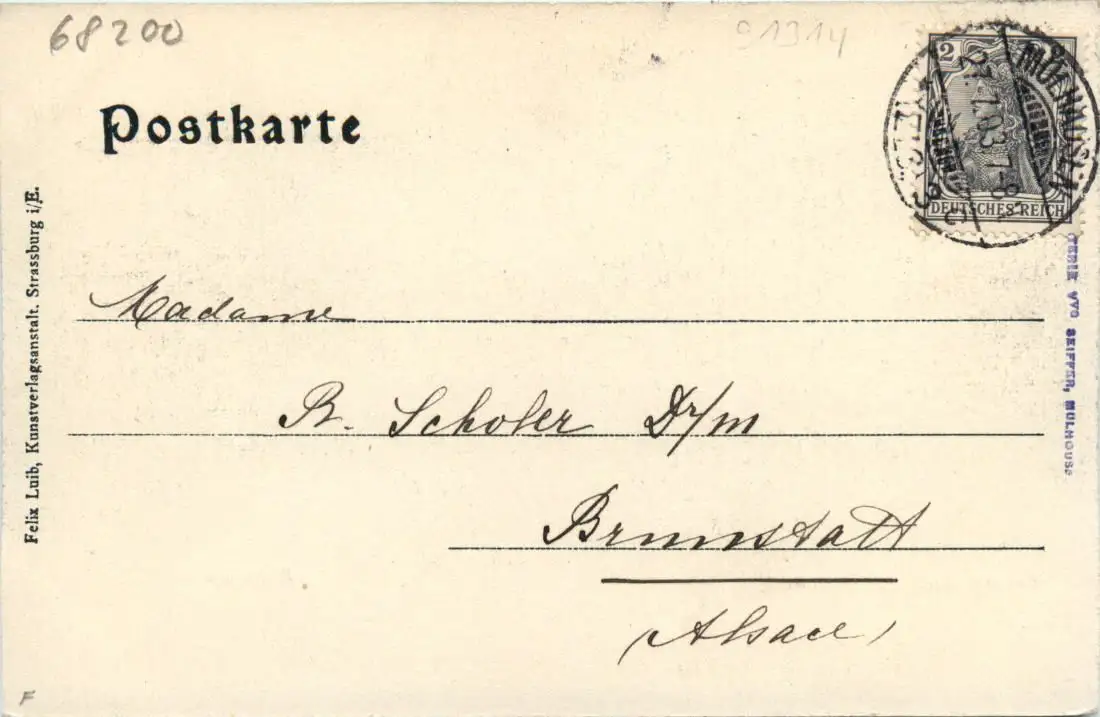 68200
91914
Postkarte
2
DEUTSCHES REICH
MÜLHAUSEN
27.1.03.7-8
Felix Luib, Kunstverlagsanstalt. Strassburg i/E.
SEIFFER, MULHOUSE
Madame
B. Scholer Dr/m
Brunstatt
(Alsace)
F